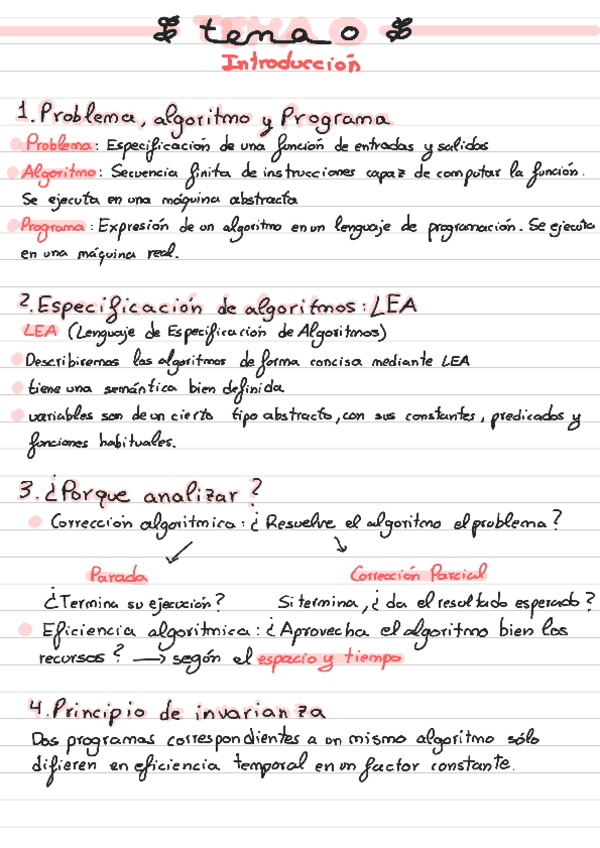 tema 0
Introducción
1. Problema, algoritmo y Programa
Problema: Especificación de una función de entradas y salidas
Algoritmo: Secuencia finita de instrucciones capaz de computar la función.
Se ejecuta en una máquina abstracta
Programa: Expresión de un algoritmo en un lenguaje de programación. Se ejecuta
en una máquina real.
2. Especificación de algoritmos: LEA
LEA (Lenguaje de Especificación de Algoritmos)
Describiremos los algoritmos de forma concisa mediante LEA
tiene una semántica bien definida
variables son de un cierto tipo abstracto, con sus constantes, predicados y
funciones habituales.
3. ¿Porque analizar?
Corrección algorítmica: ¿Resuelve el algoritmo el problema?
Parada Corrección Parcial
¿Termina su ejecución? Si termina, ¿da el resultado esperado?
Eficiencia algorítmica: ¿Aprovecha el algoritmo bien los
recursos? → según el espacio y tiempo
4. Principio de invarianza
Dos programas correspondientes a un mismo algoritmo sólo
difieren en eficiencia temporal en un factor constante.